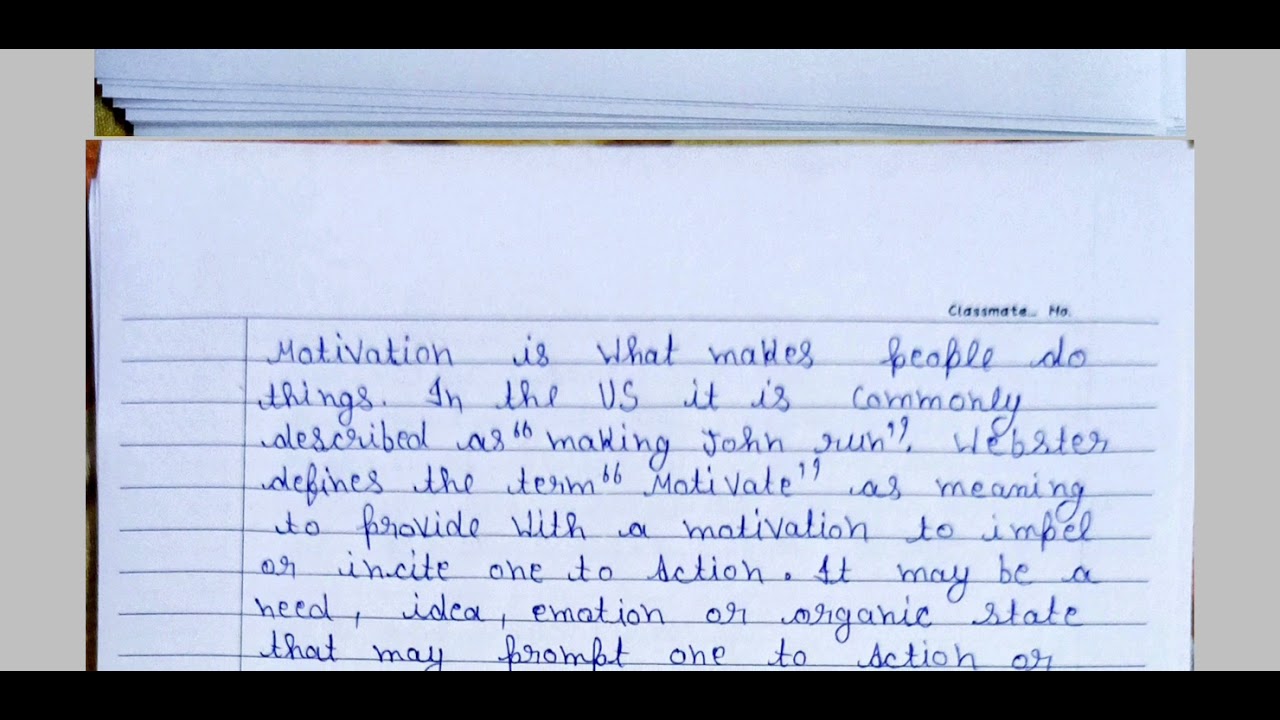 Classmate No.
Motivation is what makes people do
things. In the US it is commonly
described as "making John run". Webster
defines the term "Motivate" as meaning
to provide with a motivation to impel
or incite one to Action. It may be a
need, idea, emotion or organic state
that may prompt one to Action or